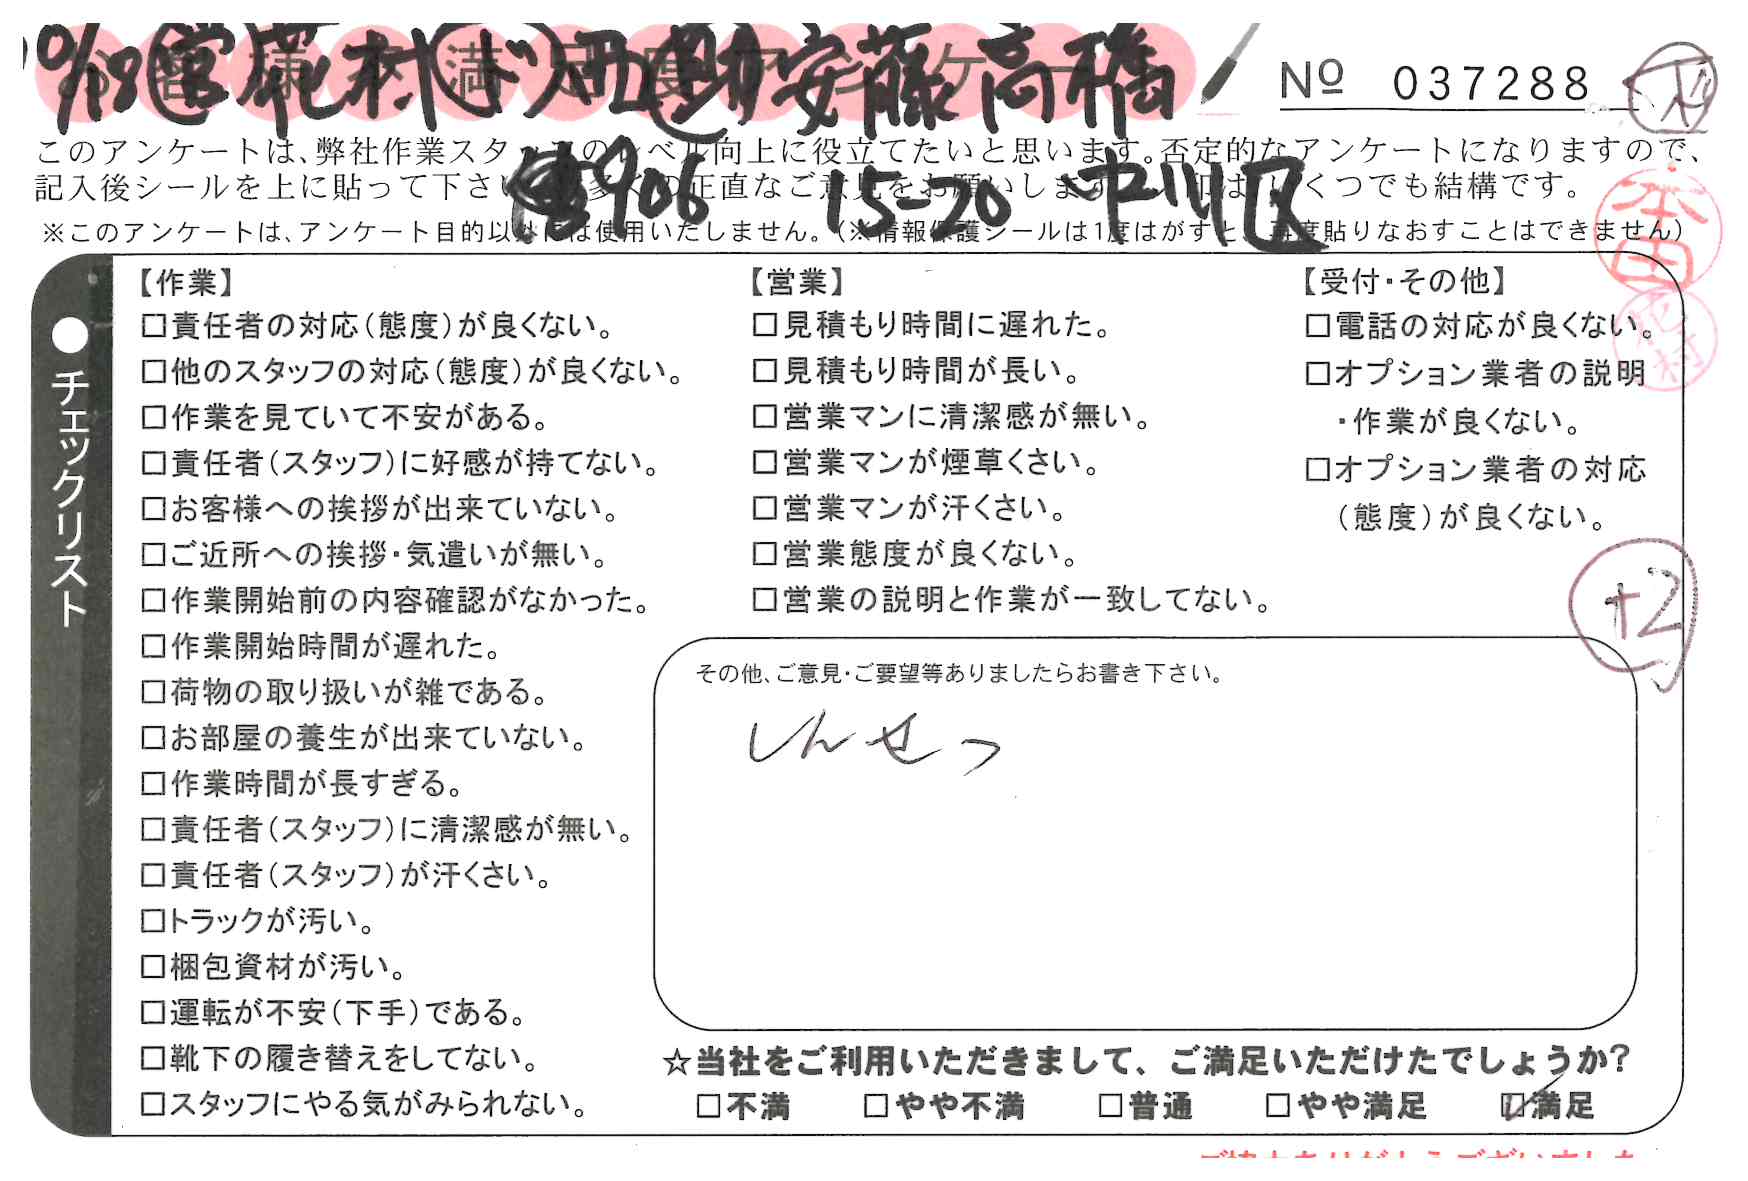 10/18 営 花村 ド 西 助 安藤 高橋
お客様満足度アンケート
Nº 037288
このアンケートは、弊社作業スタッフのレベル向上に役立てたいと思います。否定的なアンケートになりますので、
記入後シールを上に貼って下さい。多くの正直なご意見をお願いします。 いくつでも結構です。
906 15-20 中川区
※このアンケートは、アンケート目的以外には使用いたしません。(※情報保護シールは1度はがすと、再度貼りなおすことはできません)
●チェックリスト
【作業】
□責任者の対応(態度)が良くない。
□他のスタッフの対応(態度)が良くない。
□作業を見ていて不安がある。
□責任者(スタッフ)に好感が持てない。
□お客様への挨拶が出来ていない。
□ご近所への挨拶・気遣いが無い。
□作業開始前の内容確認がなかった。
□作業開始時間が遅れた。
□荷物の取り扱いが雑である。
□お部屋の養生が出来ていない。
□作業時間が長すぎる。
□責任者(スタッフ)に清潔感が無い。
□責任者(スタッフ)が汗くさい。
□トラックが汚い。
□梱包資材が汚い。
□運転が不安(下手)である。
□靴下の履き替えをしてない。
□スタッフにやる気がみられない。
【営業】
□見積もり時間に遅れた。
□見積もり時間が長い。
□営業マンに清潔感が無い。
□営業マンが煙草くさい。
□営業マンが汗くさい。
□営業態度が良くない。
□営業の説明と作業が一致してない。
【受付・その他】
□電話の対応が良くない。
□オプション業者の説明
・作業が良くない。
□オプション業者の対応
(態度)が良くない。
+2
その他、ご意見・ご要望等ありましたらお書き下さい。
しんせつ
☆当社をご利用いただきまして、ご満足いただけたでしょうか?
□不満 □やや不満 □普通 □やや満足 ☑満足